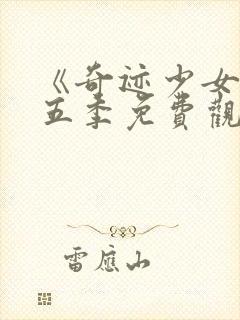 《奇迹少女
五季免費觀
雷應山